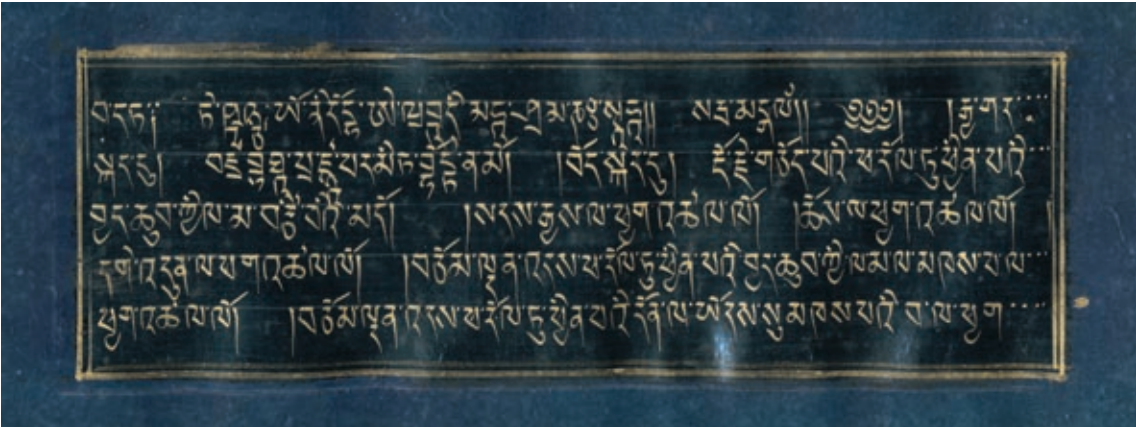 ཏེ་ཥཱཉྩ་ཡོ་ནི་རོ་དྷ་ཨེ་ཝཾ་བཱ་དཱི་མ་ཧཱ་ཤྲ་མ་ཎཿསྭཱཧཱ།། སརྦ་མངྒ་ལཾ།། །རྒྱ་གར་
སྐད་དུ། བཛྲ་ པྲཛྙཱ་པ་ར་མི་ཏ་ །བོད་སྐད་དུ། རྡོ་རྗེ་གཅོད་པའི་ཕ་རོལ་ཏུ་ཕྱིན་པའི་
བྱང་ཆུབ་ཀྱི་ལ་མ་ བའི་མདོ། །སངས་རྒྱས་ལ་ཕྱག་འཚལ་ལོ། །ཆོས་ལ་ཕྱག་འཚལ་ལོ། །
དགེ་འདུན་ལ་ཕྱག་འཚལ་ལོ། །བཅོམ་ལྡན་འདས་ཕ་རོལ་ཏུ་ཕྱིན་པའི་བྱང་ཆུབ་ཀྱི་ལམ་ལ་མཁས་པ་ལ་
ཕྱག་འཚལ་ལོ། །བཅོམ་ལྡན་འདས་ཕ་རོལ་ཏུ་ཕྱིན་པའི་དོན་ལ་ཡོངས་སུ་མཁས་པའི་བ་ལ་ཕྱག་